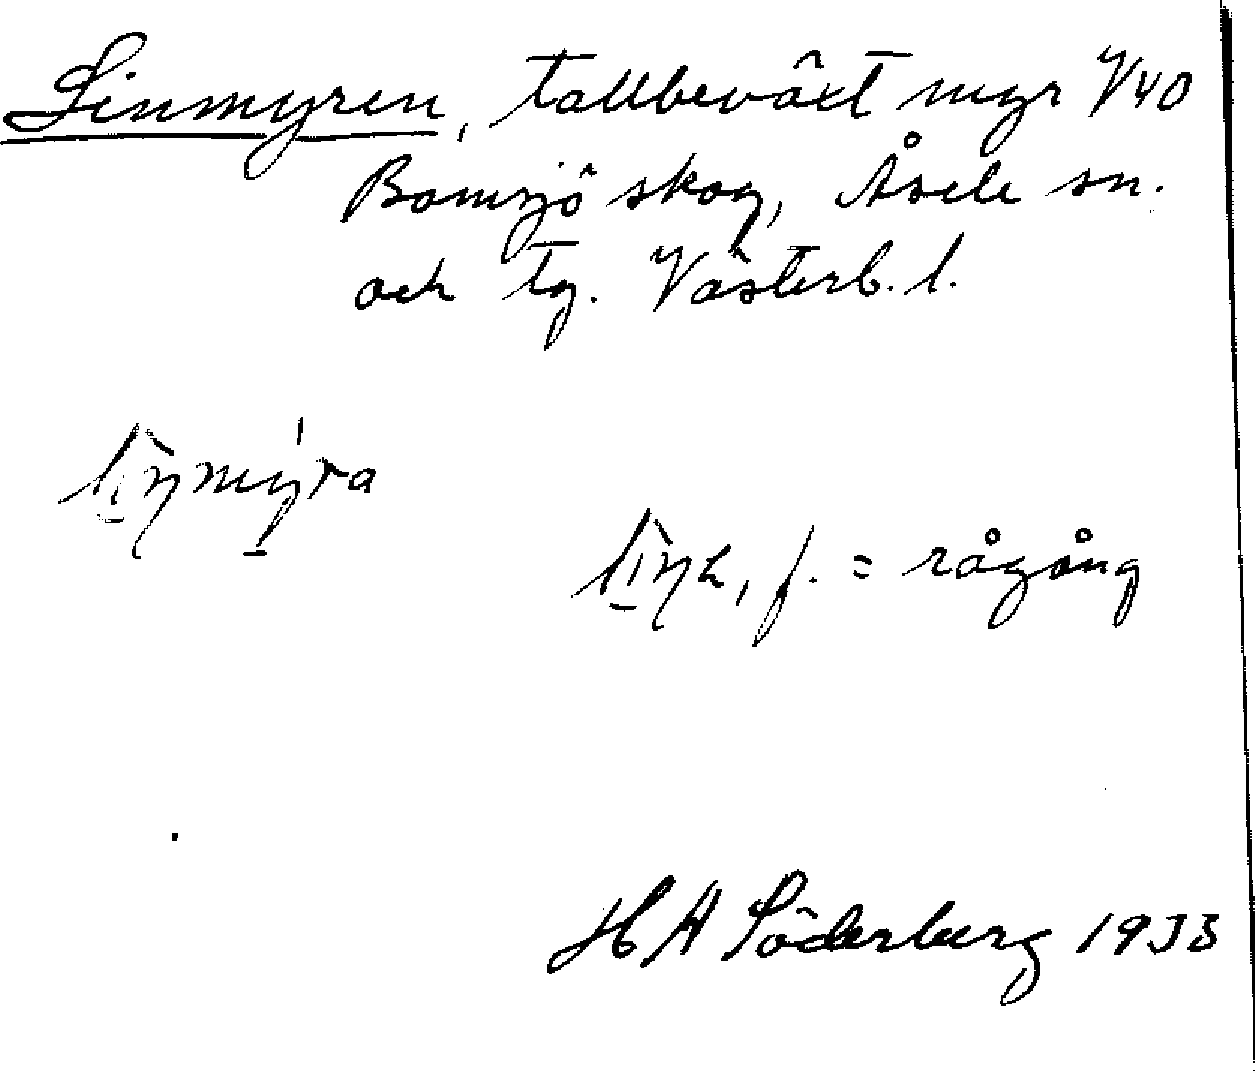 Linmyren, tallbeväxt myr V40
Bomsjö skog, Åsele sn.
och tg. Västerb. l.
f. = rågång
H A Söderberg 1933